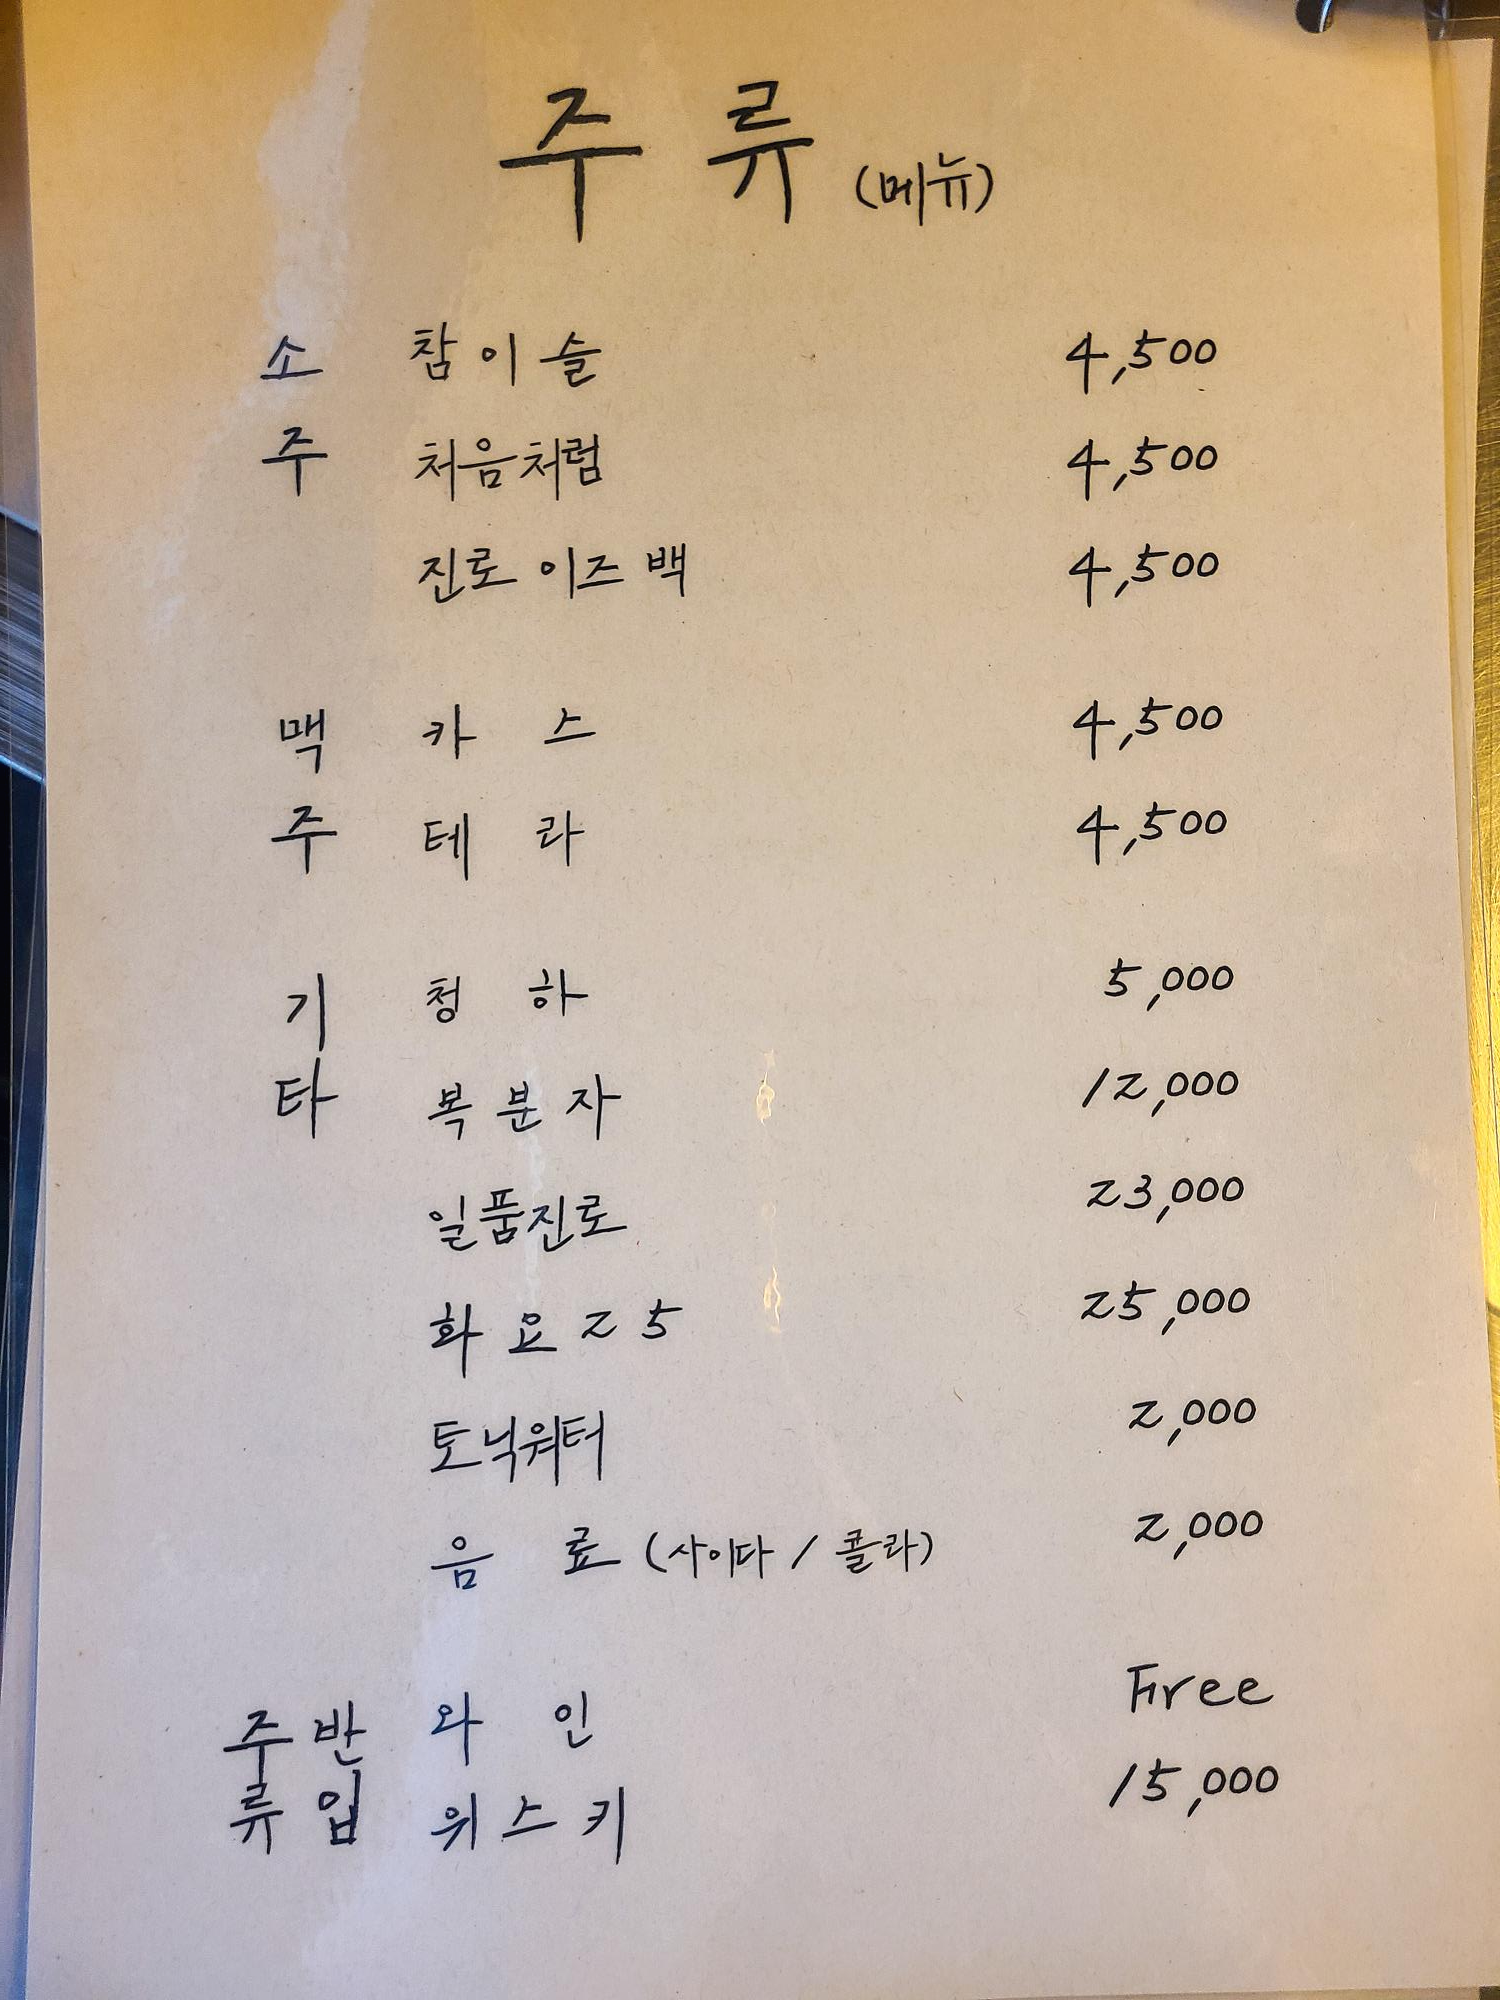 주 류 (메뉴)
소 참이슬 4,500
주 처음처럼 4,500
진로 이즈백 4,500
맥 카 스 4,500
주 테 라 4,500
기 청 하 5,000
타 복분자 12,000
일품진로 23,000
화요25 25,000
토닉워터 2,000
음 료 (사이다 / 콜라) 2,000
주 반 와 인 Free
류 입 위스키 15,000